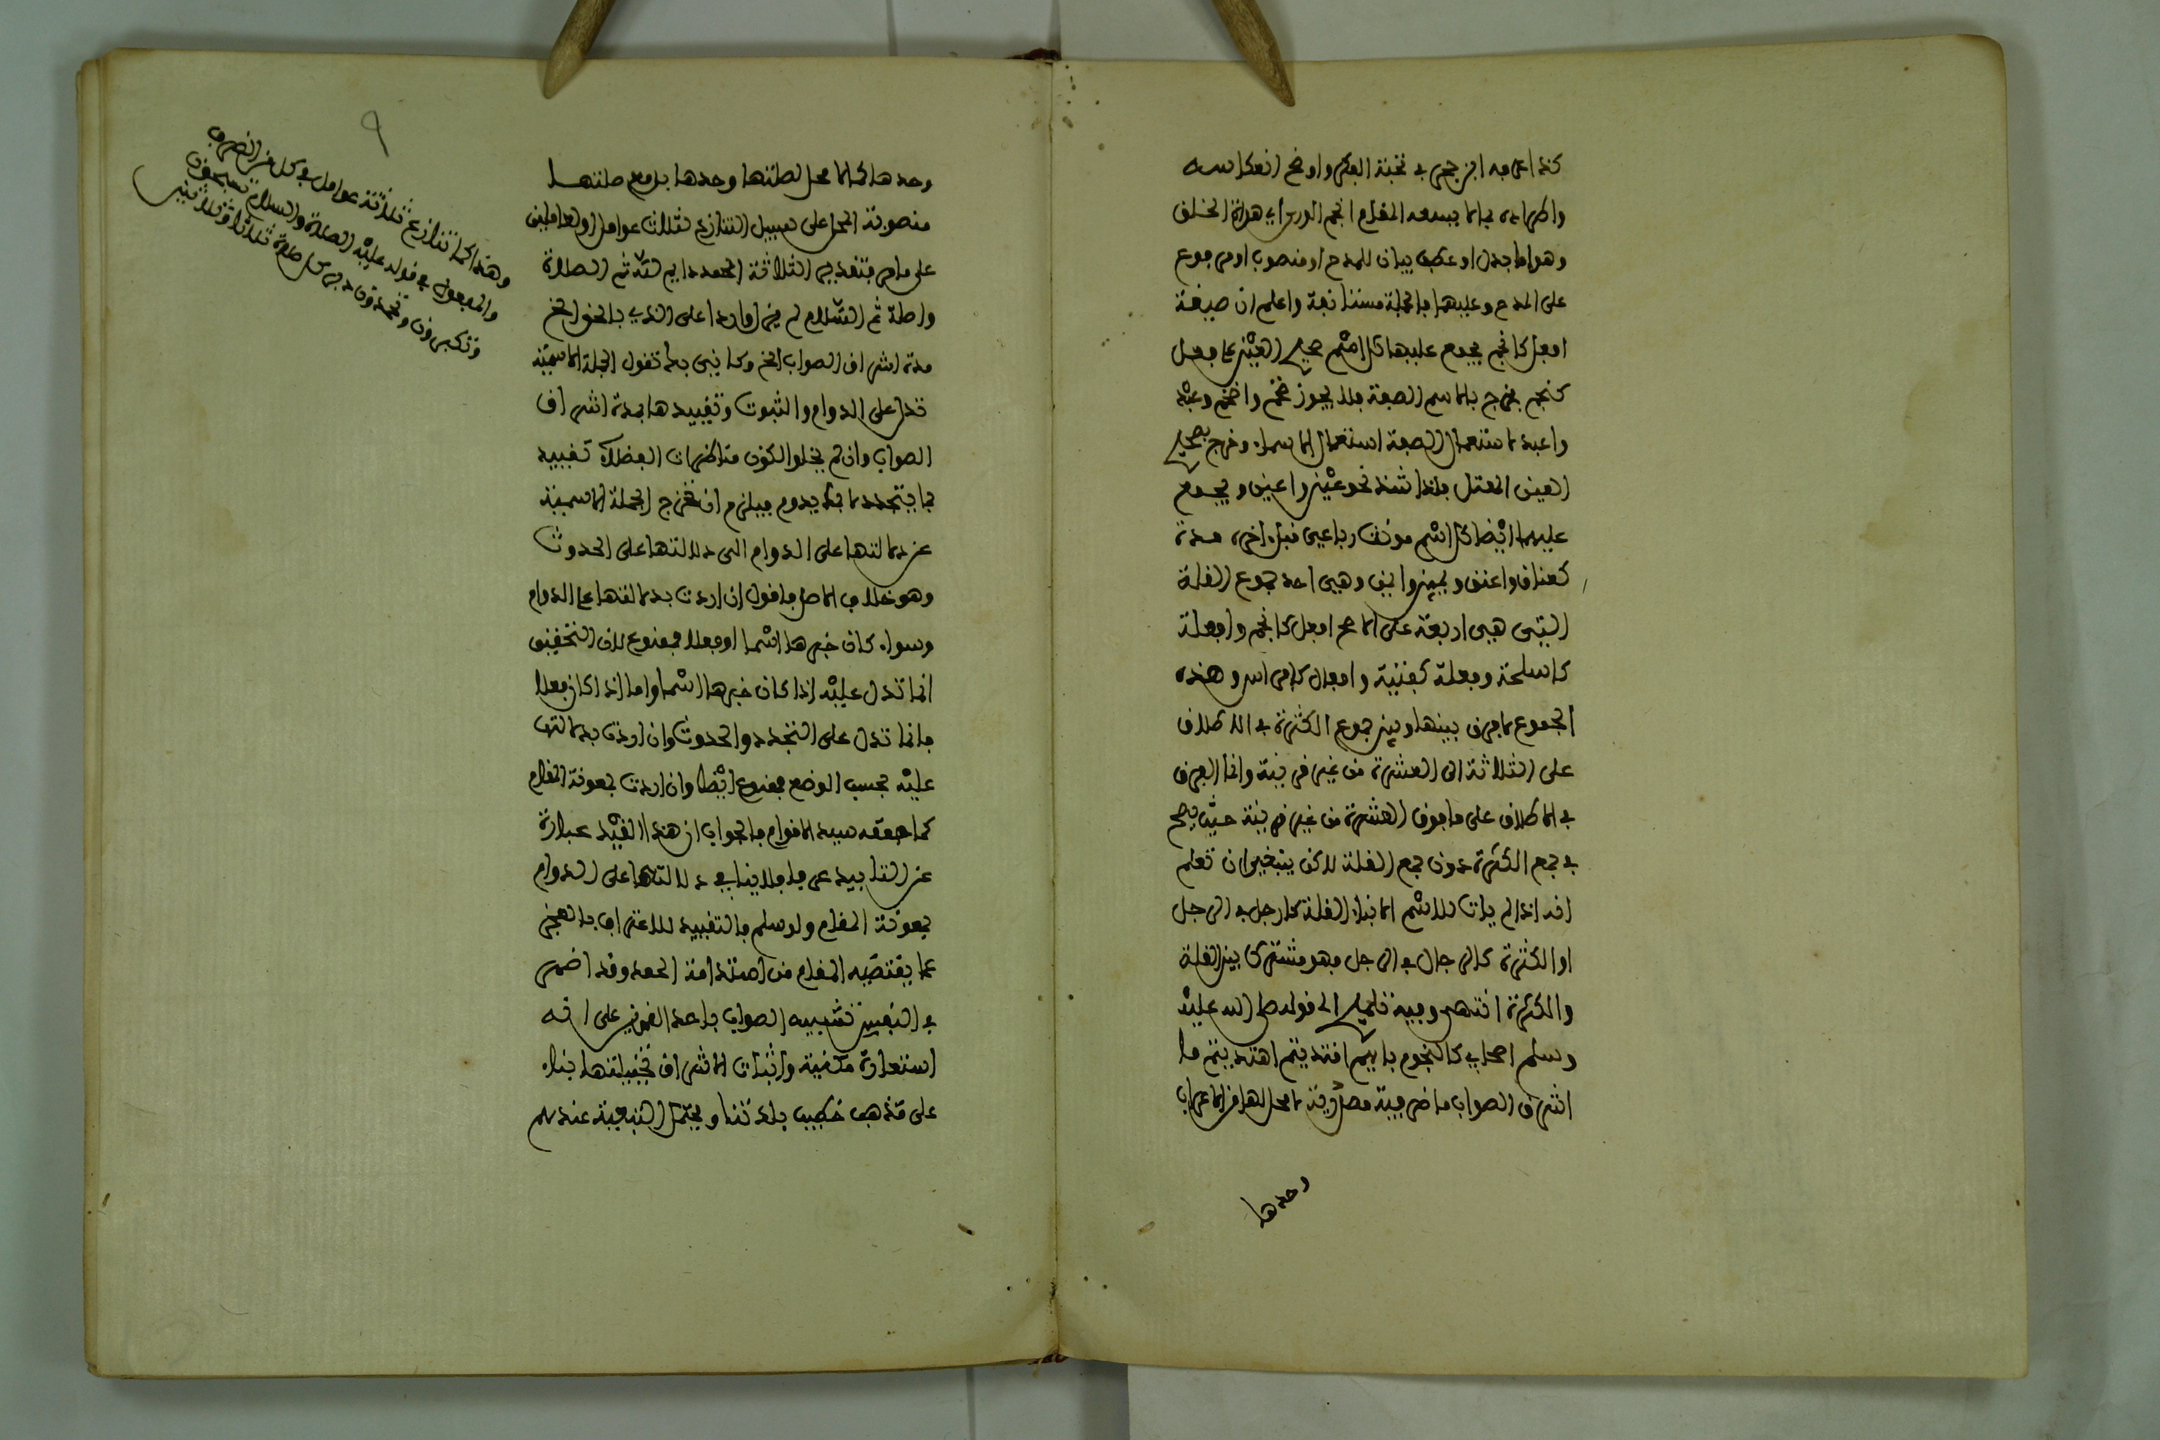 كذا عرفه ابن حجر في نخبة الفكر واوضح انعكاسه
واطراده بما لا يسعه المقام انجم الورى اي هداة الخلق
وهو اما بدل او عطف بيان للمدح او منصوب او مرفوع
على المدح وعليهما فالجملة مستانفة واعلم ان صيغة
افعل كانجم يجمع عليها كل اسم صحيح العين على فعل
كنجم فخرج بالاسم الصفة فلا يجوز ضخم واضخم وعبد
واعبد لاستعمال الصفة استعمال الاسماء وخرج بصحيح
العين المعتل فلذا شذ نحو عين واعين ويجمع
عليها ايضا كل اسم مونث رباعي قبل اخره مدة
كعناق واعنق ويمين وايمن وهي احد جموع القلة
التي هي اربعة على الاصح افعل كانجم وافعلة
كاسلحة وفعلة كفتية وافعال كافراس وهذه
الجموع لا فرق بينها وبين جموع الكثرة في الاطلاق
على الثلاثة الى العشرة من غير قرينة وانما الفرق
في الاطلاق على ما فوق العشرة من غير قرينة حيث يصح
في جمع الكثرة دون جمع القلة لاكن ينبغي ان تعلم
انه اذا لم يات للاسم الا بناء القلة كارجل في الرجل
او الكثرة كالرجال في الرجل فهو مشترك بين القلة
والكثرة انتهى وفيه تلميح الى قوله صلى الله عليه
وسلم اصحابي كالنجوم بايهم اقتديتم اهتديتم ما
اشرق الصواب ما ظرفية مصدرية لا محل لها من الاعراب
وحدها
٩
وحدها كما لا محل لصلتها وحدها بل مع صلتها
منصوبة المحل على سبيل التنازع لثلاث عوامل او لعاملين
على ما مر فتقدير الثلاثة الحمد دايم لله ثم الصلاة
واصلة ثم السلام لم يزل واردا على الذي بالحق الخ
مدة اشراق الصواب الخ وكانني بك تقول الجملة الاسمية
تدل على الدوام والثبوت وتقييدها بمدة اشراق
الصواب وان لم يخلو الكون من اظهار الفضلاء تقييد
بما يتجدد لا بما يدوم فيلزم ان تخرج الجملة الاسمية
عن دلالتها على الدوام الى دلالتها على الحدوث
وهو خلاف الاصل فاقول ان اردت بدلالتها على الدوام
وسواء كان خبرها اسما او فعلا فممنوع لان التحقيق
انما تدل عليه اذا كان خبرها اسما واما اذا كان فعلا
فانما تدل على التجدد والحدوث وان اردت بدلالتها
عليه بحسب الوضع فممنوع ايضا وان اردت بمعونة المقام
كما حققه سيد الاقوام فالجواب ان هذا القيد عبارة
عن التابيد عرفا فلا ينافي دلالتها على الدوام
بمعونة المقام ولو سلم فالتقييد للاعتراف بالعجز
عما يقتضيه المقام من استدامة الحمد وقد اضمر
في النفس تشبيه الصواب باحد القمرين على انه
استعارة مكنية واثبات الاشراق تخييلتها بناء
على مذهب خطيب بلدتنا ويحتمل التبعية عندهم
وهذا كما تنازع ثلاثة عوامل في كل من الظرف
والمفعول في قوله عليه الصلاة والسلام تسبحون
وتكبرون وتحمدون دبر كل صلاة ثلاثا وثلاثين